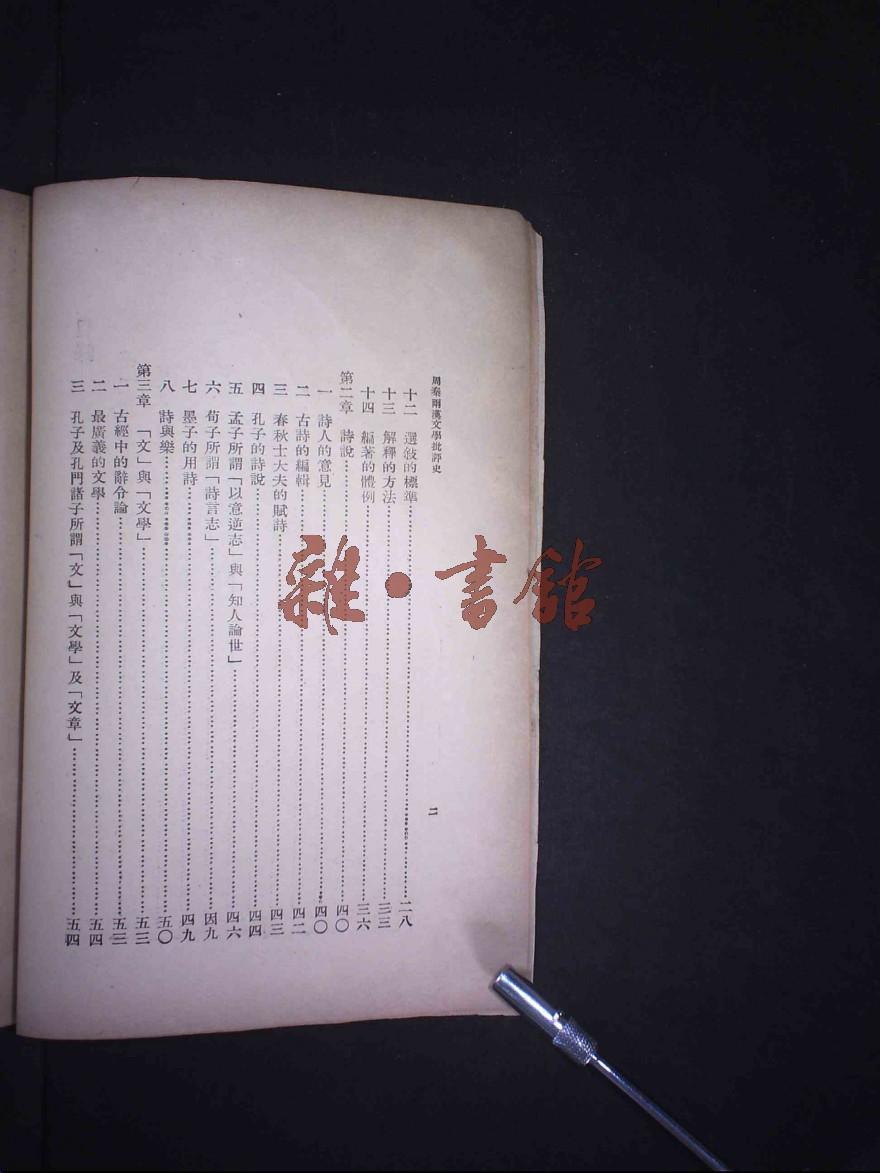 周秦兩漢文學批評史
二
十二 選敍的標準……二八
十三 解釋的方法……三三
十四 編著的體例……三六
第二章 詩說……四〇
一 詩人的意見……四〇
二 古詩的編輯……四二
三 春秋士大夫的賦詩……四三
四 孔子的詩說……四四
五 孟子所謂「以意逆志」與「知人論世」……四六
六 荀子所謂「詩言志」……因九
七 墨子的用詩……四九
八 詩與樂……五〇
第三章 「文」與「文學」……五三
一 古經中的辭令論……五三
二 最廣義的文學……五四
三 孔子及孔門諸子所謂「文」與「文學」及「文章」……五四
雜·書館